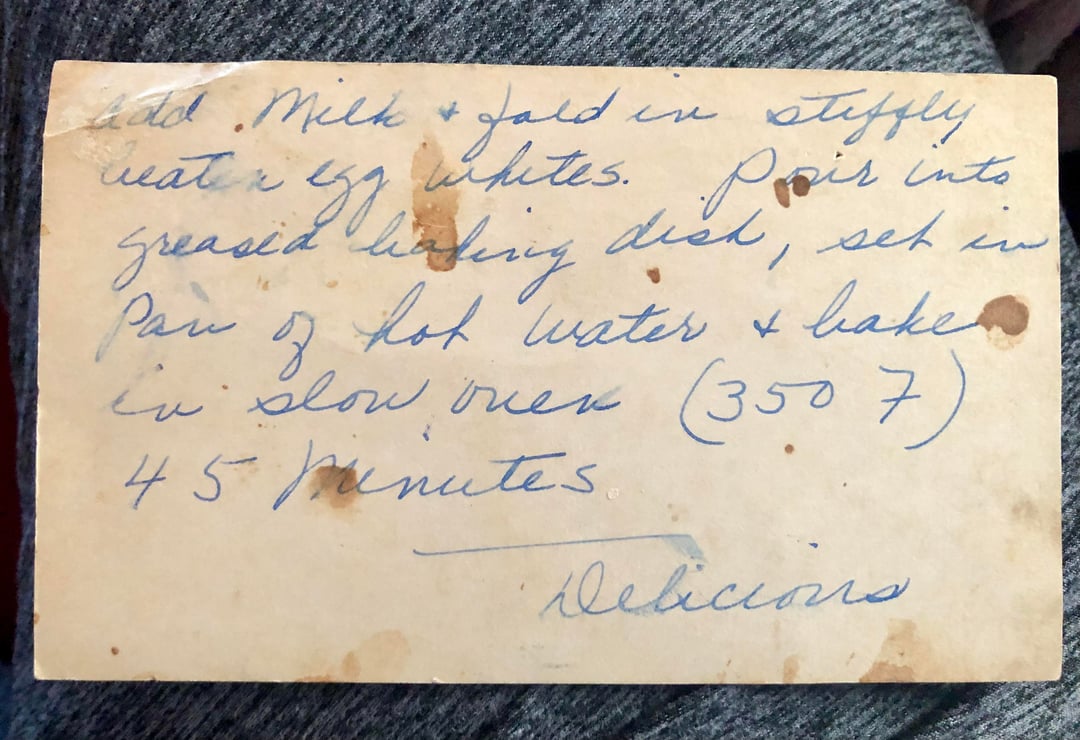 add Milk + fold in stiffly
beaten egg whites. Pour into
greased baking dish, set in
Pan of hot water + bake
in slow oven (350 F)
45 Minutes
Delicious